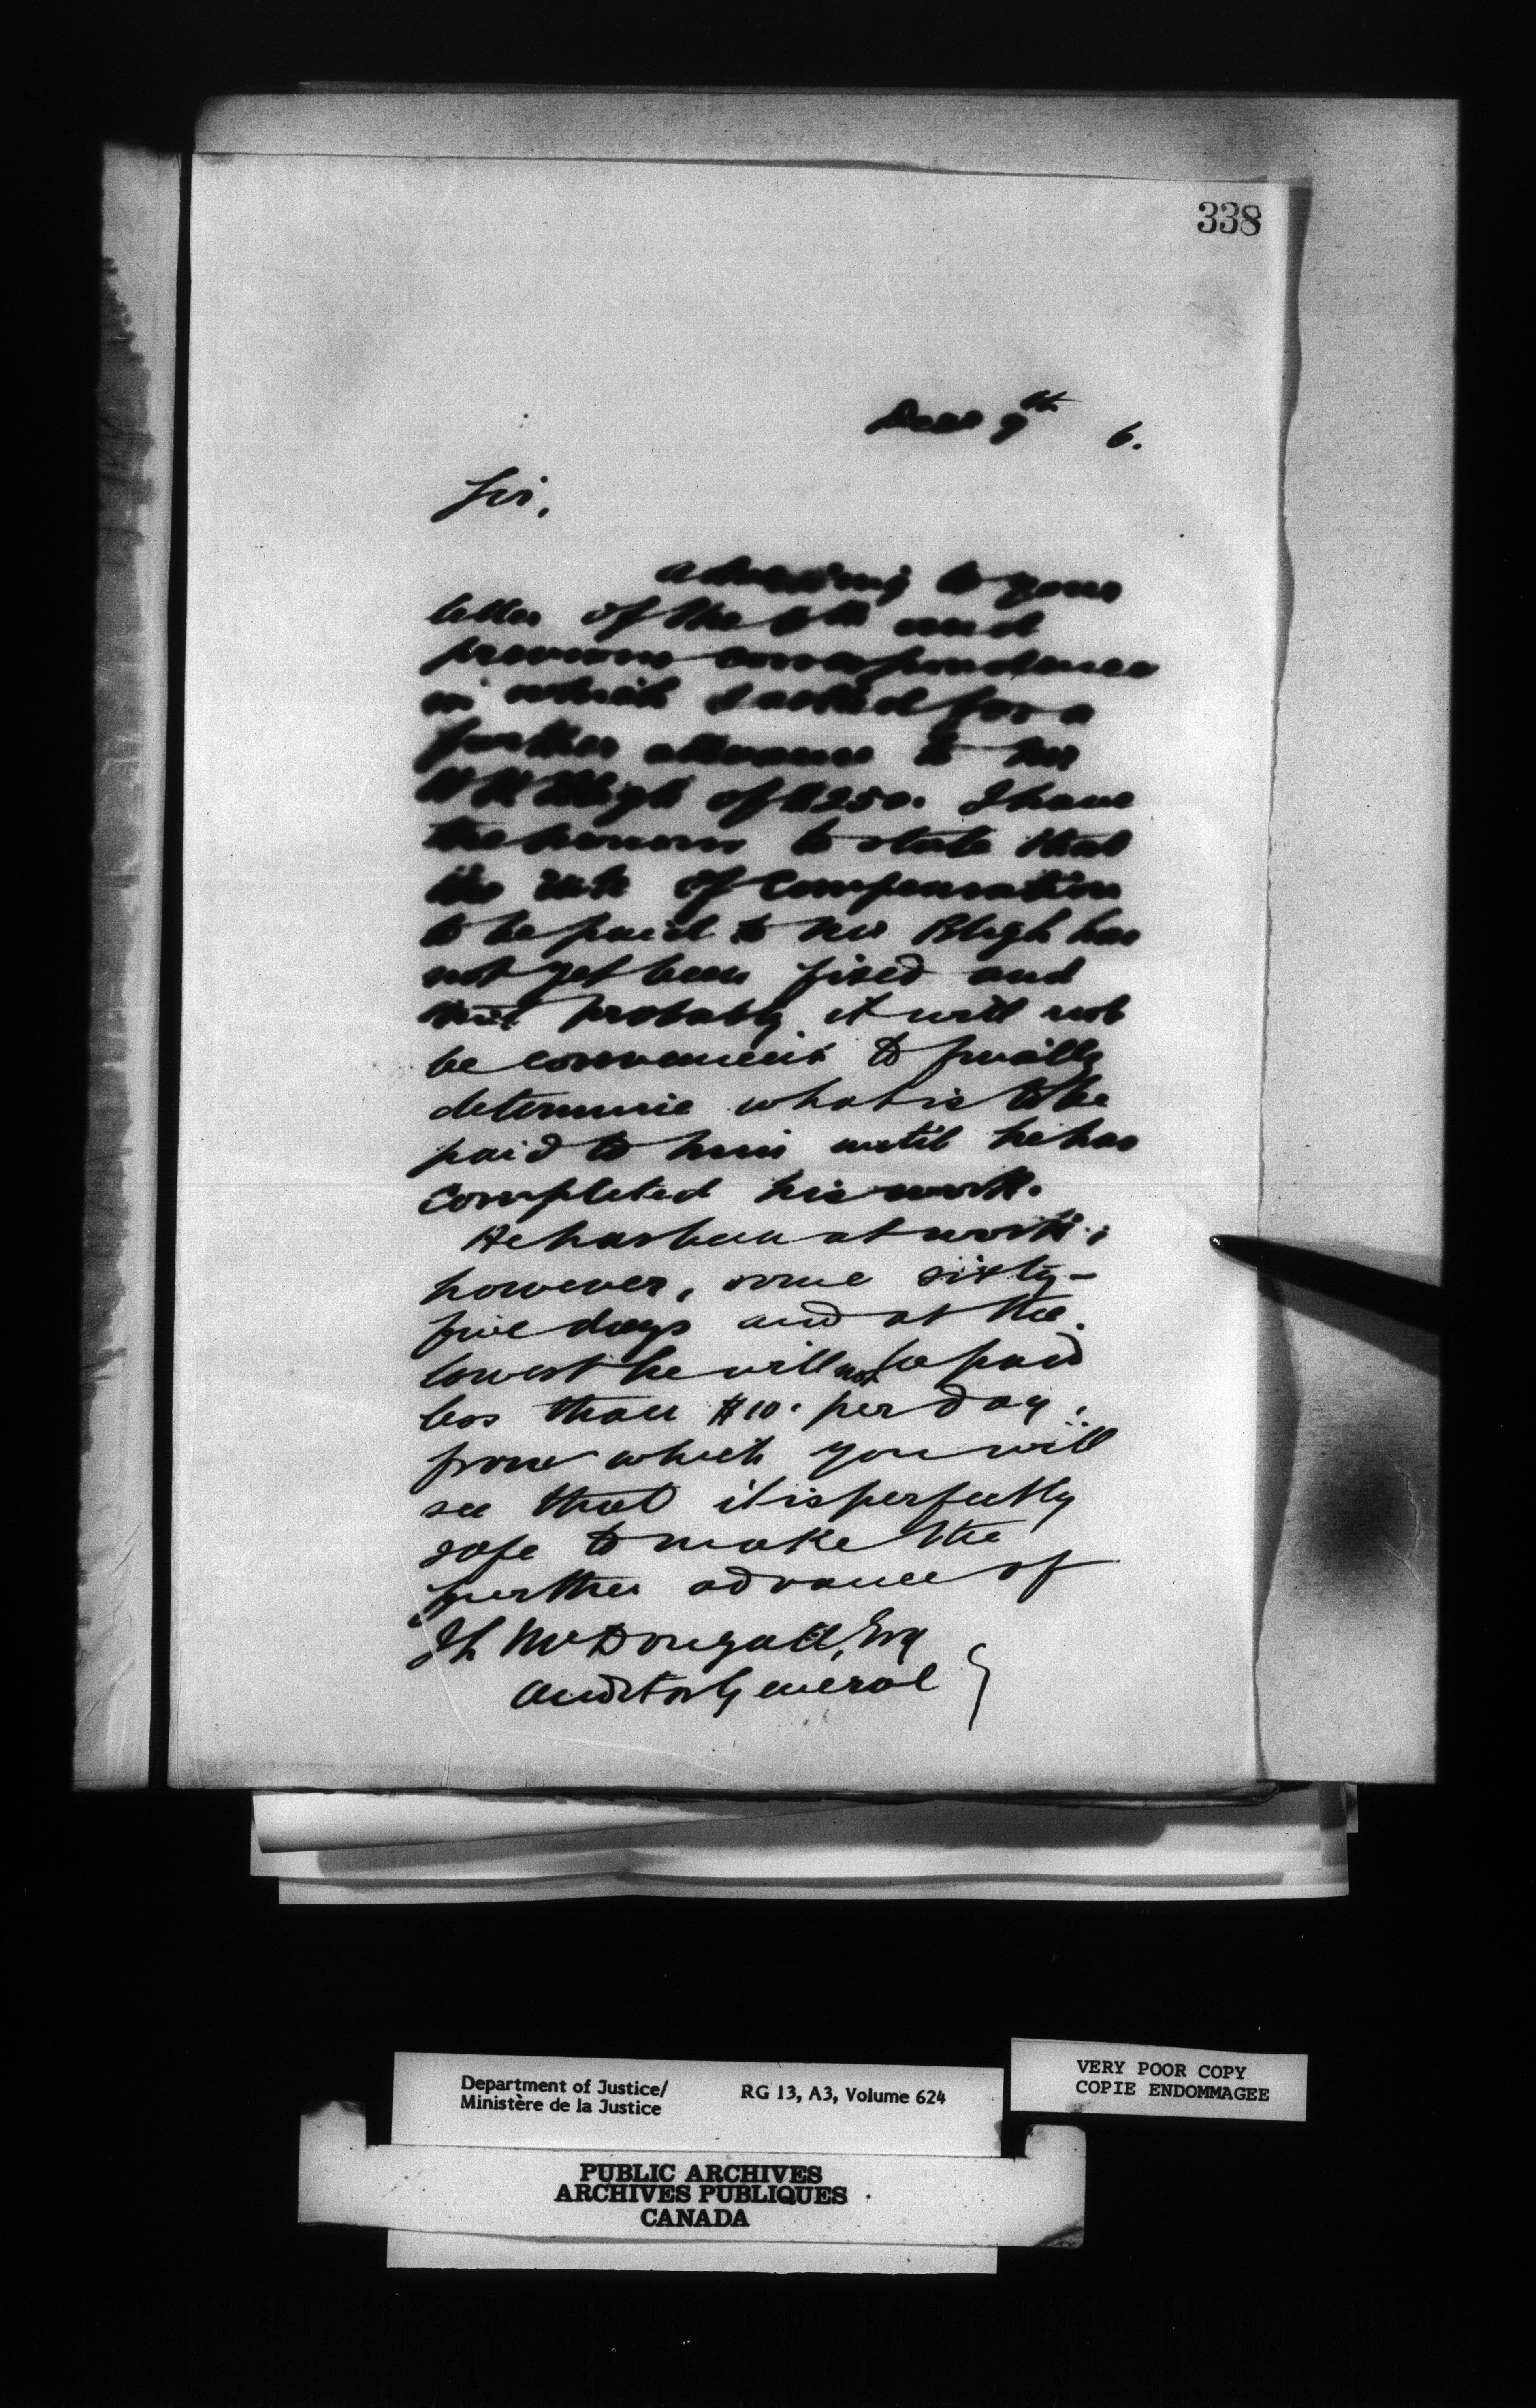 338
Decr 9th 6.
Sir,
adverting to your
letter of the 6th and
previous correspondence
in which I asked for a
further advance to Mr
Bligh of $250. I have
the honour to state that
the rate of Compensation
to be paid to Mr Bligh has
not yet been fixed and
probably it will not
be convenient to finally
determine what is to be
paid to him until he has
completed his work.
He has been at work,
however, some sixty-
five days and at the
lowest he will not be paid
less than $10. per day,
from which you will
see that it is perfectly
safe to make the
further advance of
J L McDougall, Esq
Auditor General
Department of Justice/
Ministère de la Justice
RG 13, A3, Volume 624
VERY POOR COPY
COPIE ENDOMMAGEE
PUBLIC ARCHIVES
ARCHIVES PUBLIQUES
CANADA